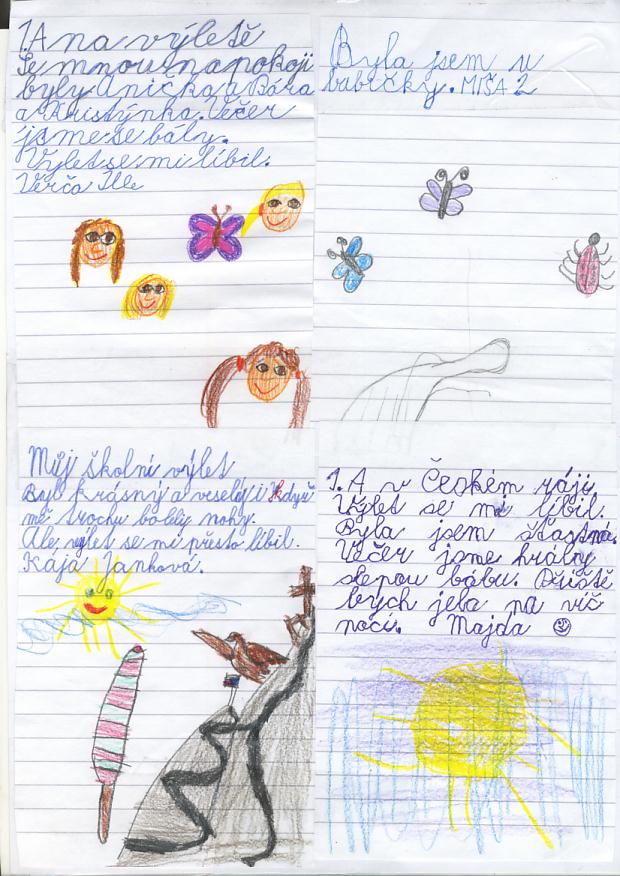 1.A na výletě
Se mnou na pokoji
byly Anička a Bára
a Kristýnka. Večer
jsme se bály.
Výlet se mi líbil.
Verča Ille
Byla jsem u
babičky. MIŠA 2
Můj školní výlet
Byl krásný a veselý i když
mě trochu bolely nohy.
Ale výlet se mi přesto líbil.
Kája Janková.
1. A v Českém ráji
Výlet se mi líbil.
Byla jsem šťastná.
Večer jsme hrály
slepou bábu. Příště
bych jela na víc
nocí. Majda